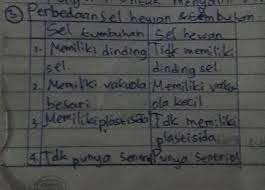 ③ Perbedaan sel hewan & tumbuhan
Sel tumbuhan Sel hewan
1. Memiliki dinding Tidk memiliki
sel. dinding sel.
2. Memiliki vakuola Memiliki vaku
besari ola kecil
3. Memiliki plastisida Tdk memiliki
plastisida.
4. Tdk punya Punya sentriol